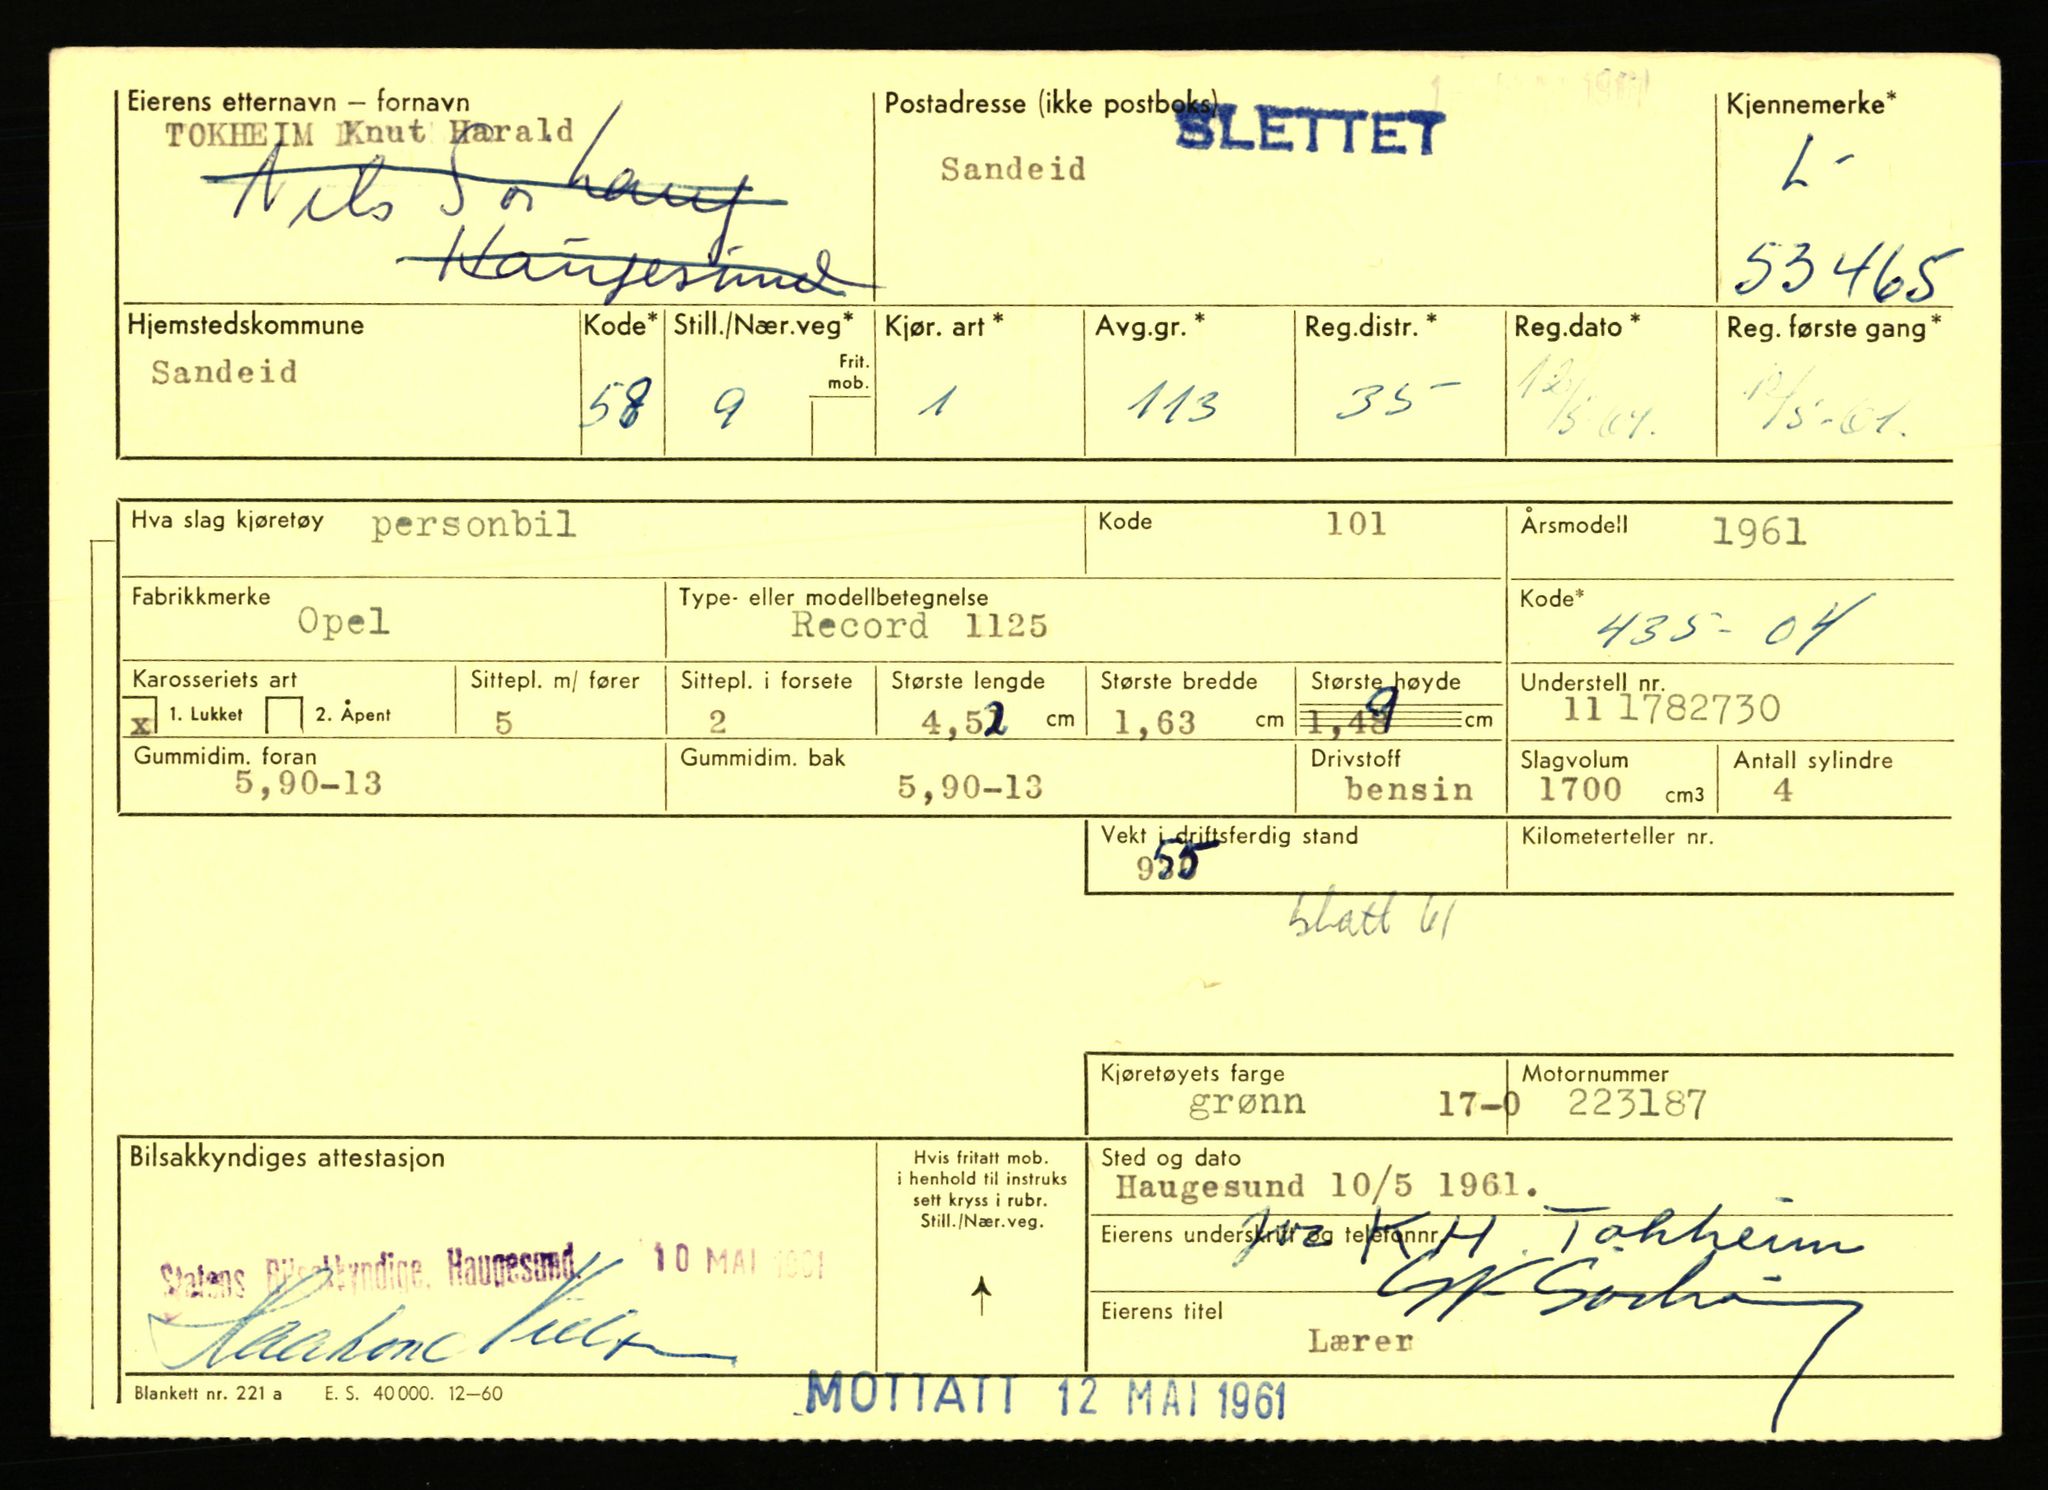 Eierens etternavn – fornavn
TOKHEIM Knut Harald
Nils Sørhaug
Haugesund
Postadresse (ikke postboks)
SLETTET
Sandeid
Kjennemerke*
L-
53465
Hjemstedskommune
Sandeid
Kode*
58
Still./Nær.veg*
9
Frit.
mob.
Kjør. art*
1
Avg.gr.*
113
Reg.distr.*
35
Reg.dato*
12/5-61.
Reg. første gang*
12/5-61.
Hva slag kjøretøy personbil
Kode 101
Årsmodell 1961
Fabrikkmerke
Opel
Type- eller modellbetegnelse
Record 1125
Kode*
435-04
Karosseriets art
x 1. Lukket 2. Åpent
Sittepl. m/ fører
5
Sittepl. i forsete
2
Største lengde
4,52 cm
Største bredde
1,63 cm
Største høyde
1,49 cm
Understell nr.
11 1782730
Gummidim. foran
5,90-13
Gummidim. bak
5,90-13
Drivstoff
bensin
Slagvolum
1700 cm3
Antall sylindre
4
Vekt i driftsferdig stand
955
Kilometerteller nr.
61
Kjøretøyets farge
grønn 17-0
Motornummer
223187
Bilsakkyndiges attestasjon
Statens Bilsakkyndige, Haugesund. 10 MAI 1961
Hvis fritatt mob.
i henhold til instruks
sett kryss i rubr.
Still./Nær.veg.
Sted og dato
Haugesund 10/5 1961.
Eierens underskrift og telefonnr.
K H. Tokheim
Eierens titel
Lærer
Blankett nr. 221 a E. S. 40 000. 12–60
MOTTATT 12 MAI 1961